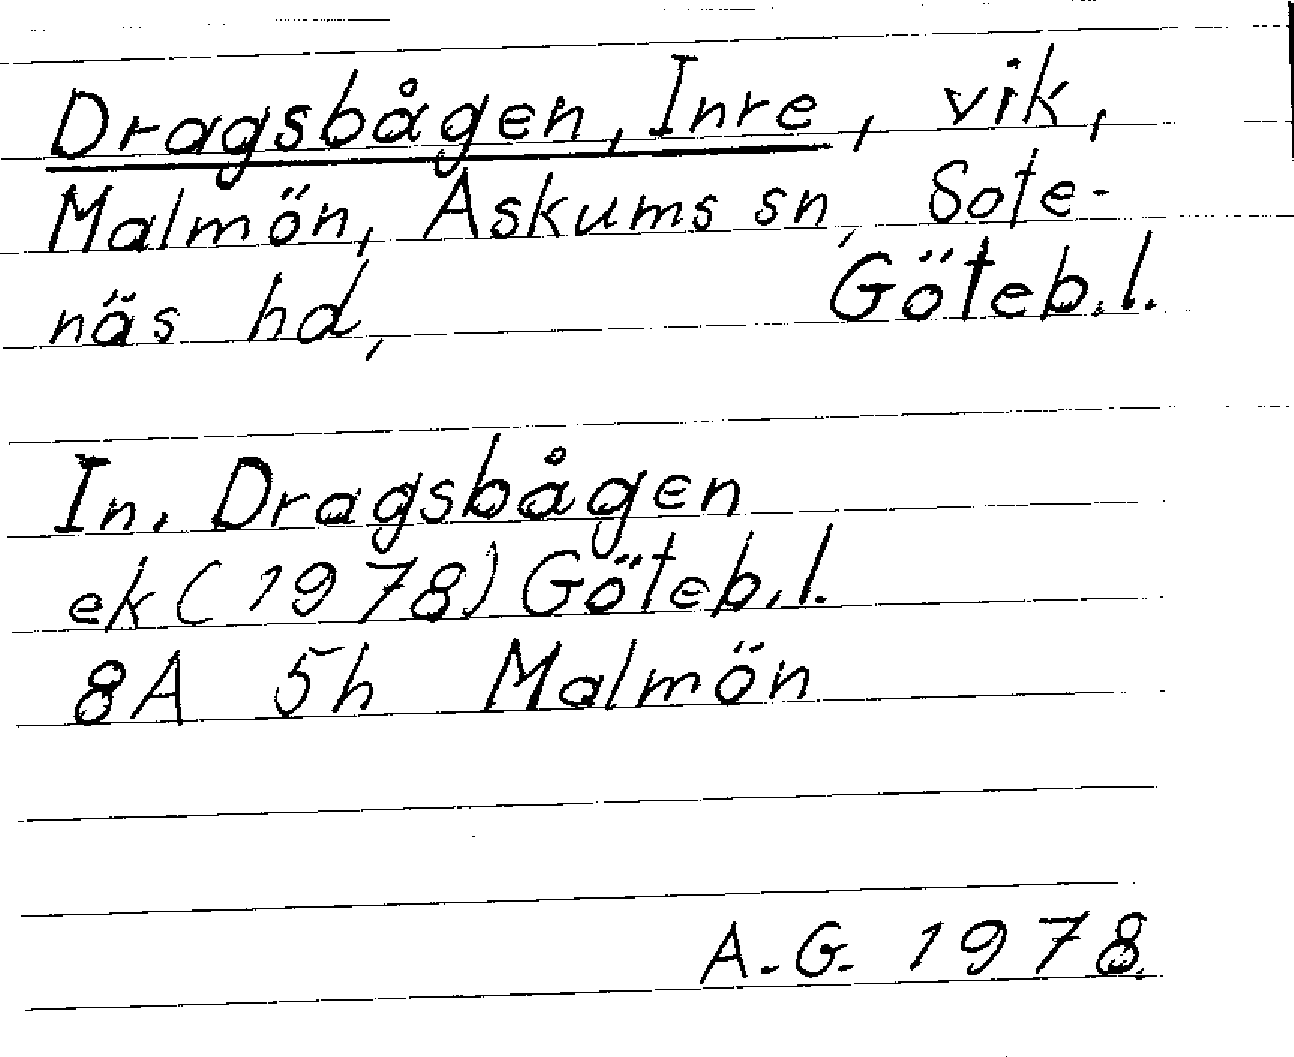 Dragsbågen, Inre, vik,
Malmön, Askums sn, Sote-
näs hd, Göteb.l.
In. Dragsbågen
ek (1978) Göteb.l.
8A 5h Malmön
A.G. 1978.